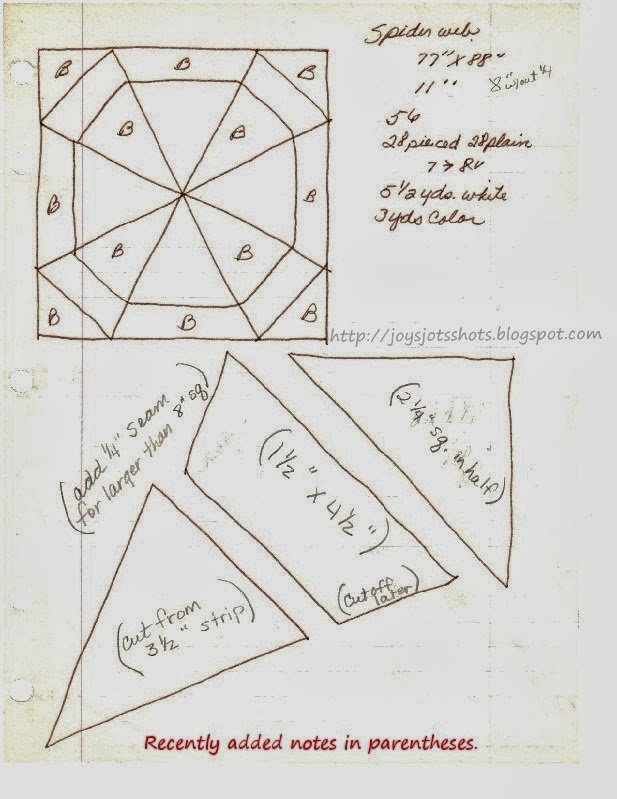 Spider web
77" X 88"
11" 8" w/out ¼
56
28 pieced 28 plain
7 → 8
5 1/2 yds. white
3 yds Color
B B B
B B
B B
B B
B B B
http://joysjotsshots.blogspot.com
(add ¼" seam
for larger than 8" sq.)
(1½" X 4½")
(cut off
later)
(cut from
3½" strip)
sq. in half)
Recently added notes in parentheses.